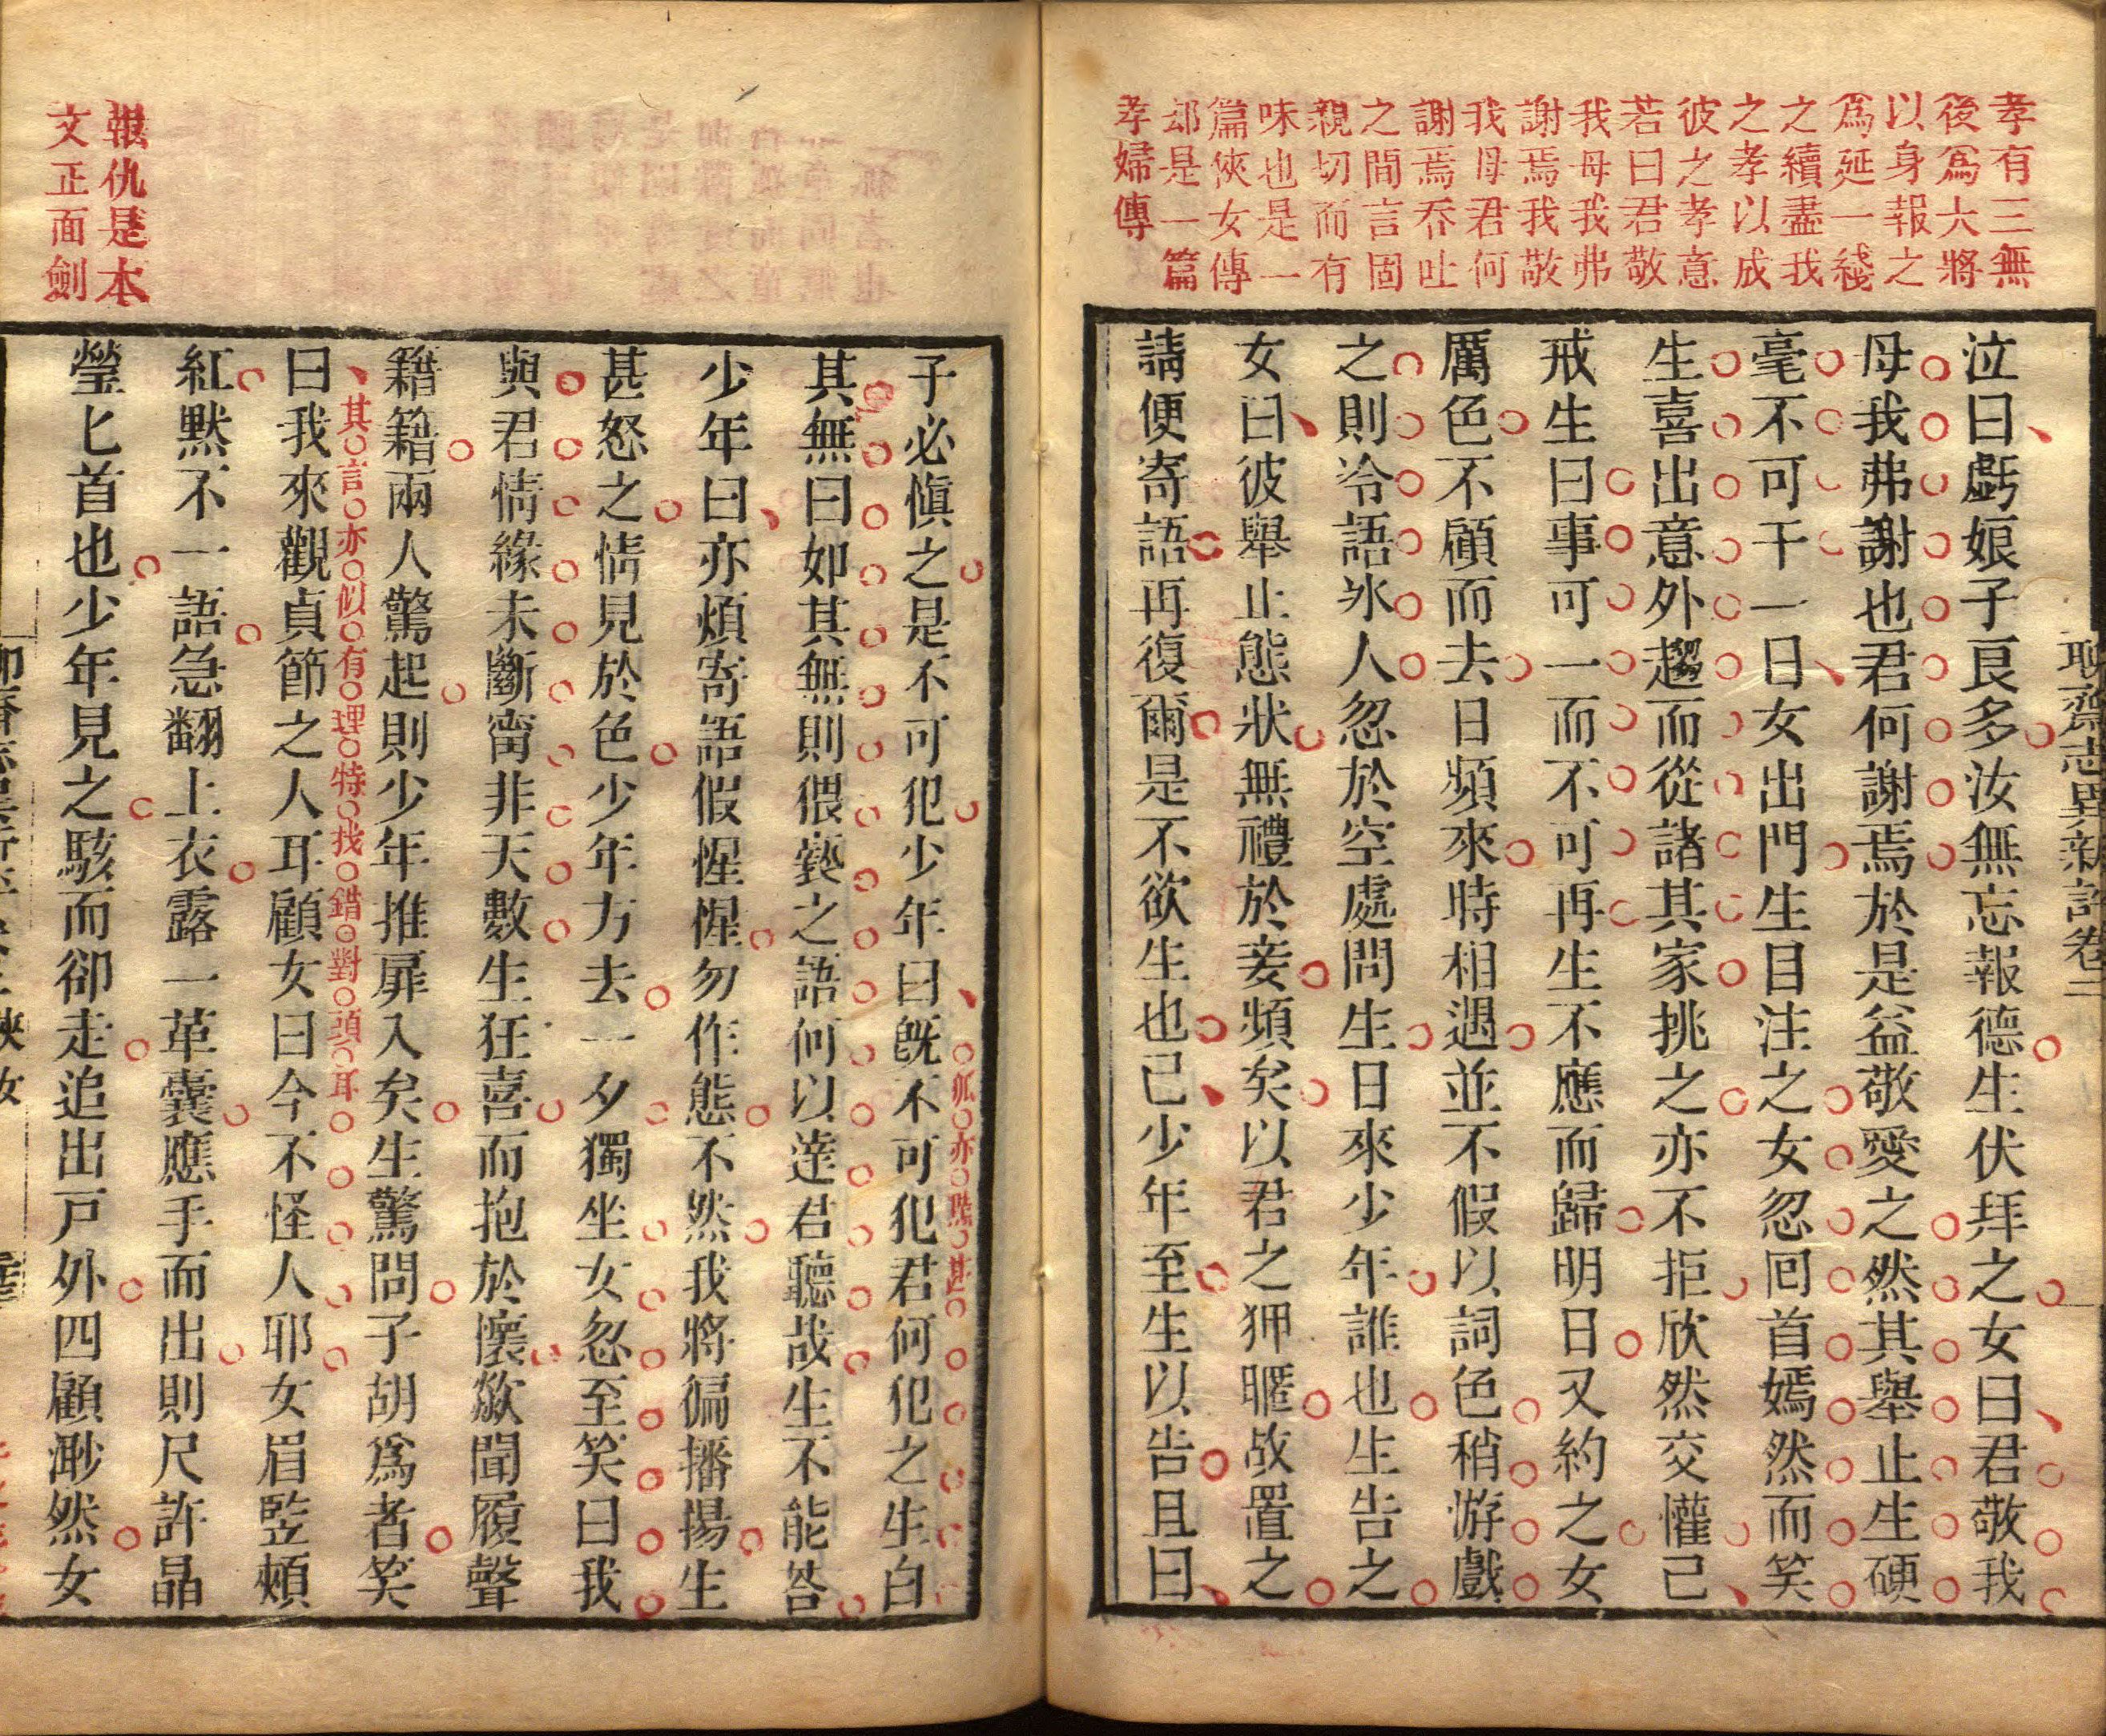 孝有三無
後爲大將
以身報之
爲延一綫
之續盡我
之孝以成
彼之孝意
若曰君敬
我母我弗
謝焉我敬
我母君何
謝焉吞吐
之間言固
親切而有
味也是一
篇俠女傳
却是一篇
孝婦傳
聊齋志異新評卷二
泣曰虧娘子良多汝無忘報德生伏拜之女曰君敬我
母我弗謝也君何謝焉於是益敬愛之然其舉止生硬
毫不可干一日女出門生目注之女忽回首嫣然而笑
生喜出意外趨而從諸其家挑之亦不拒欣然交懽已
戒生曰事可一而不可再生不應而歸明日又約之女
厲色不顧而去日頻來時相遇並不假以詞色稍游戲
之則冷語氷人忽於空處問生日來少年誰也生告之
女曰彼舉止態狀無禮於妾頻矣以君之狎暱故置之
請便寄語再復爾是不欲生也已少年至生以告且曰
報仇是本
文正面劍
子必慎之是不可犯少年曰旣不可犯君何犯之生白
狐亦點甚
其無曰如其無則猥褻之語何以達君聽哉生不能答
少年曰亦煩寄語假惺惺勿作態不然我將徧播揚生
甚怒之情見於色少年方去一夕獨坐女忽至笑曰我
與君情緣未斷甯非天數生狂喜而抱於懷歘聞履聲
籍籍兩人驚起則少年推扉入矣生驚問子胡爲者笑
其言亦似有理特找錯對頭耳
曰我來觀貞節之人耳顧女曰今不怪人耶女眉竪頰
紅默不一語急翻上衣露一革囊應手而出則尺許晶
瑩匕首也少年見之駭而卻走追出戸外四顧渺然女